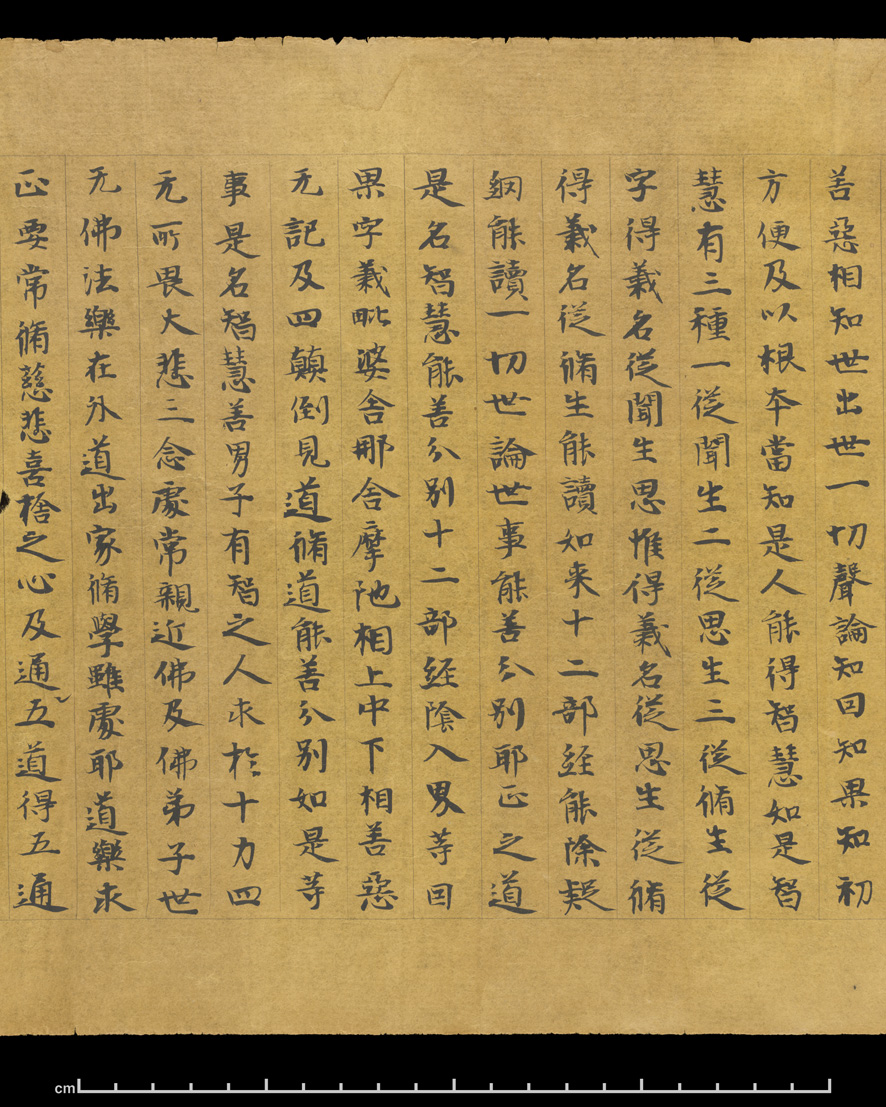 善惡相知世出世一切聲論知因知果知初
方便及以根夲當知是人能得智慧如是智
慧有三種一從聞生二從思生三從脩生從
字得義名從聞生思惟得義名從思生從脩
得義名從脩生能讀如来十二部経能除疑
網能讀一切世論世事能善分別耶正之道
是名智慧能善分別十二部経陰入界等因
果字義毗婆舍那舍摩陁相上中下相善惡
无記及四顛倒見道脩道能善分別如是等
事是名智慧善男子有智之人求於十力四
无所畏大悲三念處常親近佛及佛弟子世
无佛法樂在外道出家脩學雖處耶道樂求
正要常脩慈悲喜捨之心及通五道得五通
cm